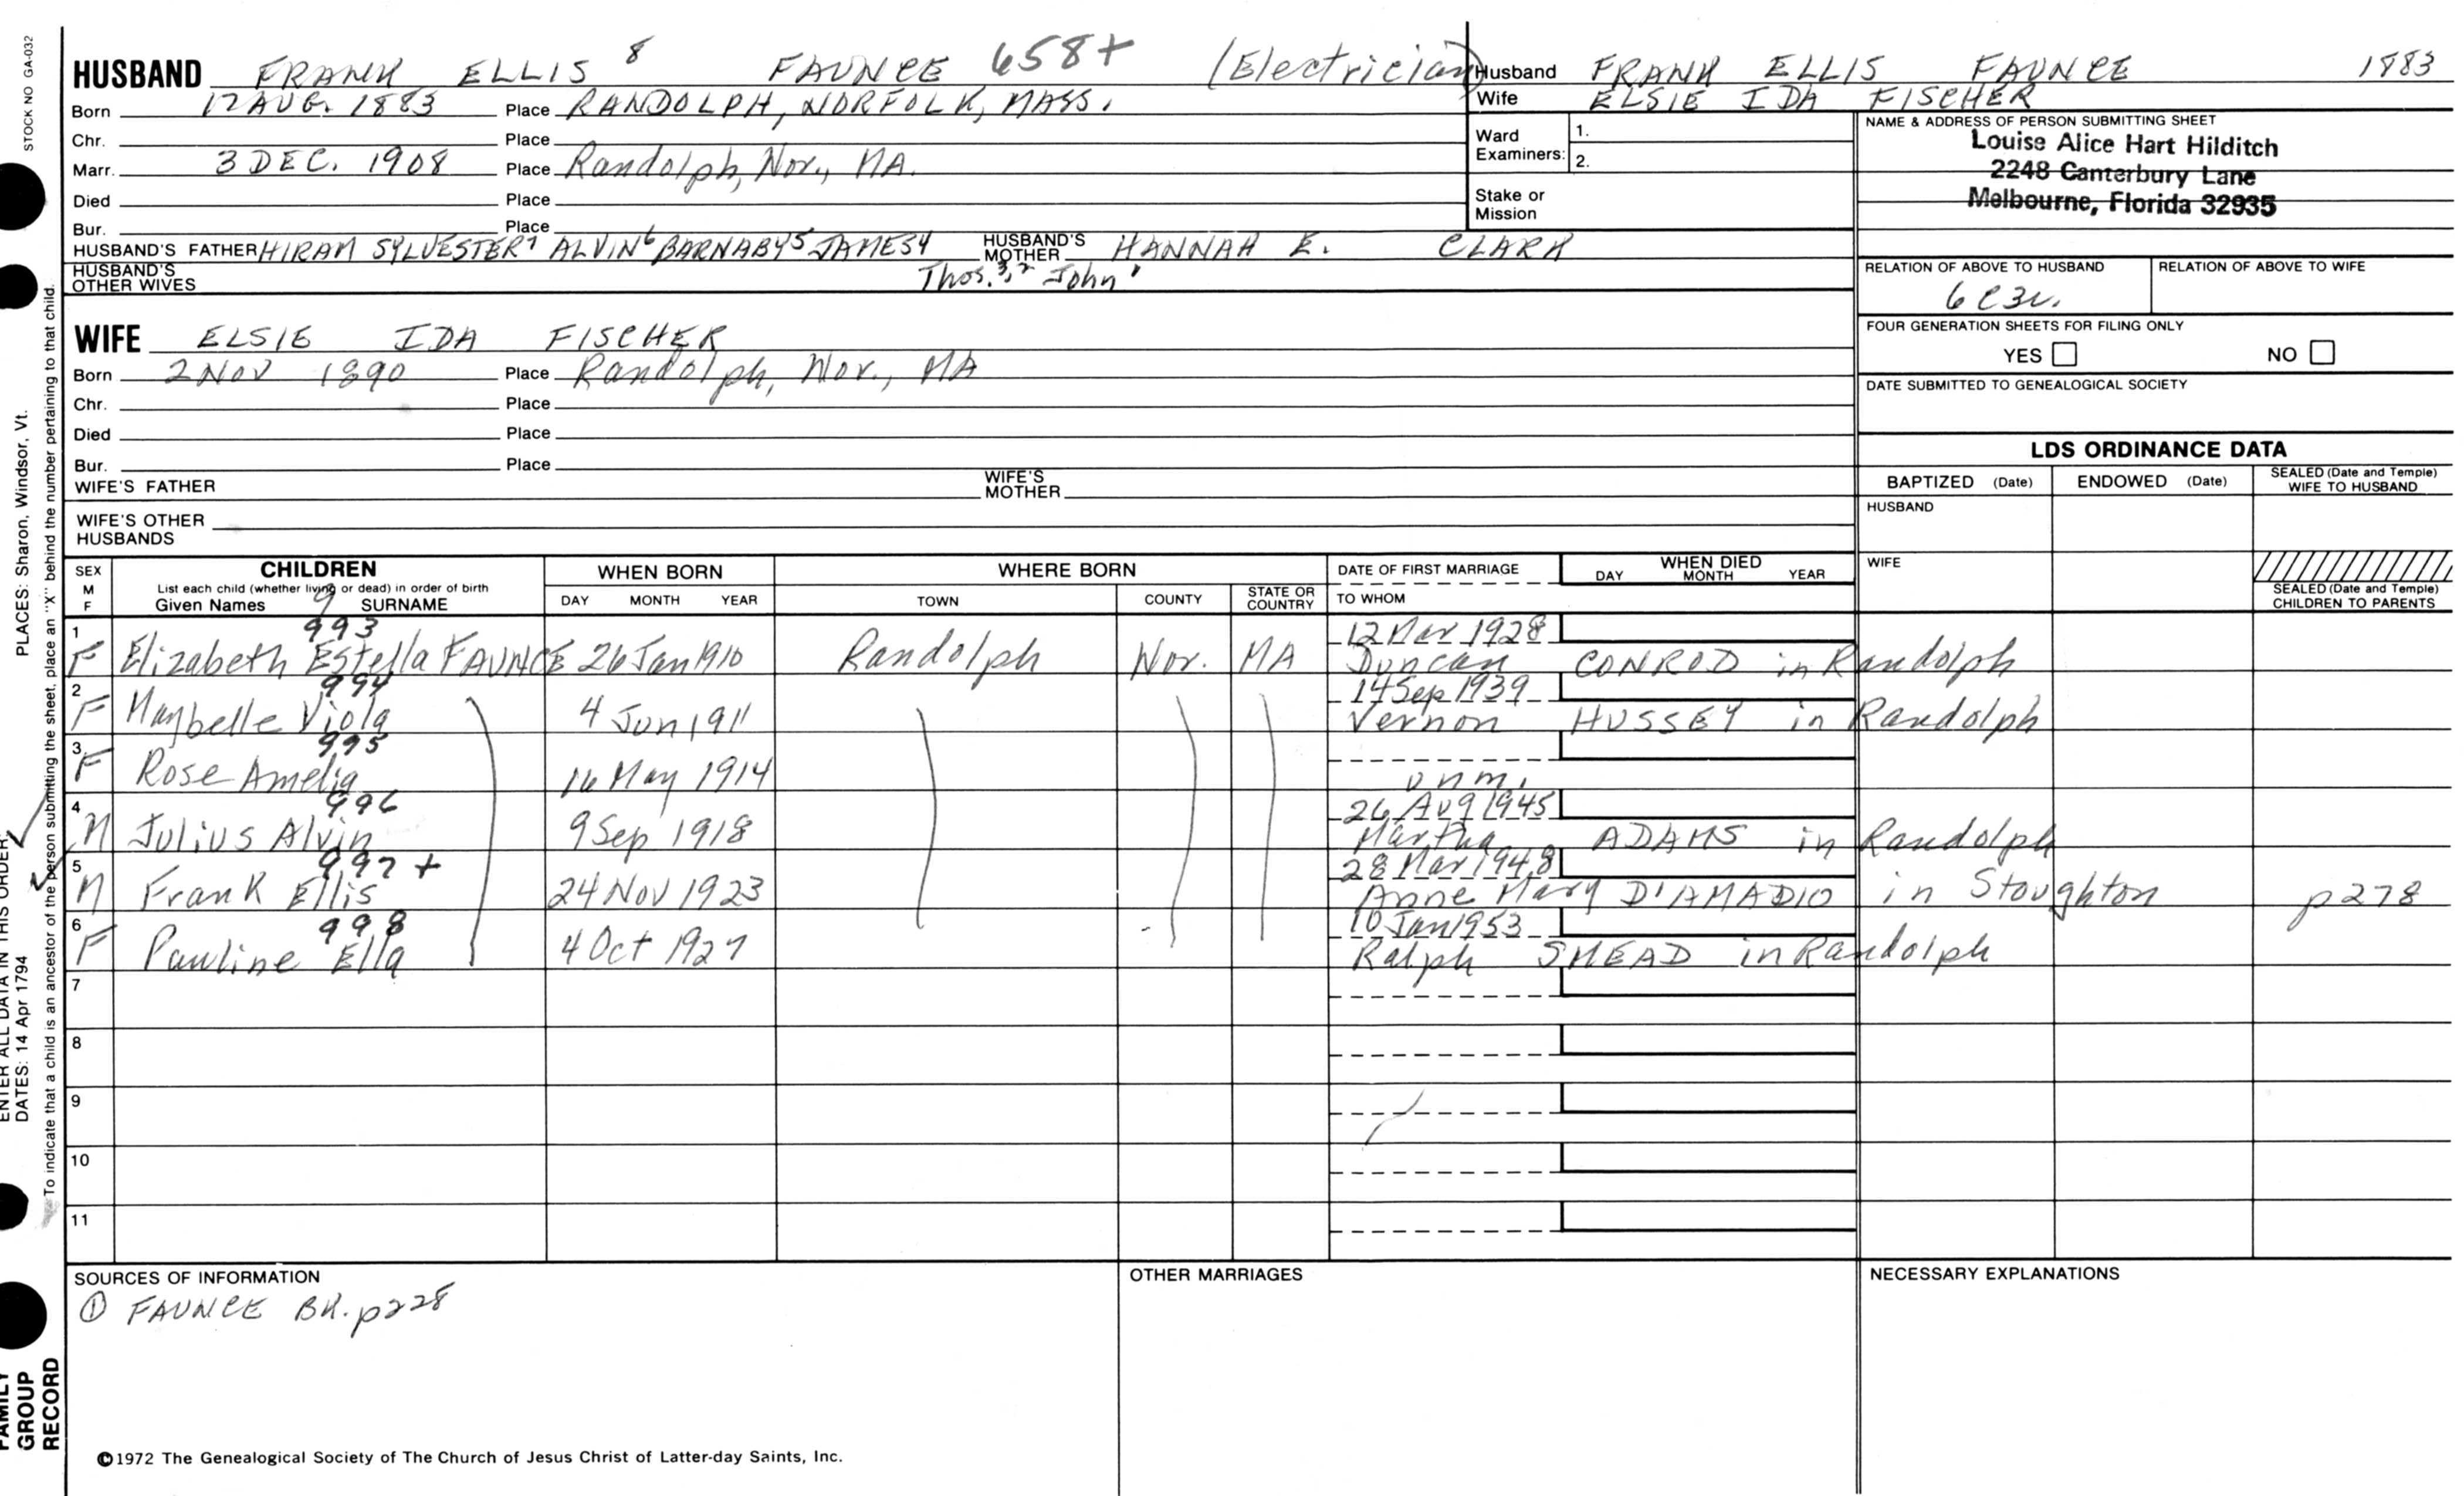 HUSBAND FRANK ELLIS 8 FAUNCE 658+ (Electrician)
Born 17 AUG. 1883 Place RANDOLPH, NORFOLK, MASS.
Chr. Place
Marr. 3 DEC. 1908 Place Randolph, Nor., MA.
Died Place
Bur. Place
HUSBAND'S FATHER HIRAM SYLVESTER7 ALVIN6 BARNABY5 JAMES4 HUSBAND'S MOTHER HANNAH E. CLARK
HUSBAND'S OTHER WIVES Thos.3,2 John1
Husband FRANK ELLIS FAUNCE 1883
Wife ELSIE IDA FISCHER
Ward Examiners: 1.
2.
Stake or Mission
NAME & ADDRESS OF PERSON SUBMITTING SHEET
Louise Alice Hart Hilditch
2248 Canterbury Lane
Melbourne, Florida 32935
RELATION OF ABOVE TO HUSBAND RELATION OF ABOVE TO WIFE
6C3r.
FOUR GENERATION SHEETS FOR FILING ONLY
YES NO
DATE SUBMITTED TO GENEALOGICAL SOCIETY
WIFE ELSIE IDA FISCHER
Born 2 NOV 1890 Place Randolph, Nor., MA
Chr. Place
Died Place
Bur. Place
WIFE'S FATHER WIFE'S MOTHER
WIFE'S OTHER HUSBANDS
LDS ORDINANCE DATA
BAPTIZED (Date) ENDOWED (Date) SEALED (Date and Temple) WIFE TO HUSBAND
HUSBAND
WIFE
SEALED (Date and Temple) CHILDREN TO PARENTS
SEX M F CHILDREN WHEN BORN WHERE BORN DATE OF FIRST MARRIAGE WHEN DIED
List each child (whether living or dead) in order of birth DAY MONTH YEAR TOWN COUNTY STATE OR COUNTRY TO WHOM DAY MONTH YEAR
Given Names 9 SURNAME
1 993 12 Mar 1928
F Elizabeth Estella FAUNCE 26 Jan 1910 Randolph Nor. MA Duncan CONROD in Randolph
2 994 14 Sep 1939
F Maybelle Viola 4 Jun 1911 Vernon HUSSEY in Randolph
3 995
F Rose Amelia 16 May 1914 unm.
4 996 26 Aug 1945
M Julius Alvin 9 Sep 1918 Martha ADAMS in Randolph
5 997 + 28 Mar 1948
M Frank Ellis 24 Nov 1923 Anne Mary D'AMADIO in Stoughton p278
6 998 10 Jan 1953
F Pauline Ella 4 Oct 1927 Ralph SMEAD in Randolph
7
8
9
10
11
SOURCES OF INFORMATION OTHER MARRIAGES NECESSARY EXPLANATIONS
① FAUNCE BK. p228
©1972 The Genealogical Society of The Church of Jesus Christ of Latter-day Saints, Inc.
STOCK NO GA-032
PLACES: Sharon, Windsor, Vt.
ENTER ALL DATA IN THIS ORDER:
DATES: 14 Apr 1794
To indicate that a child is an ancestor of the person submitting the sheet, place an "X" behind the number pertaining to that child.
FAMILY GROUP RECORD